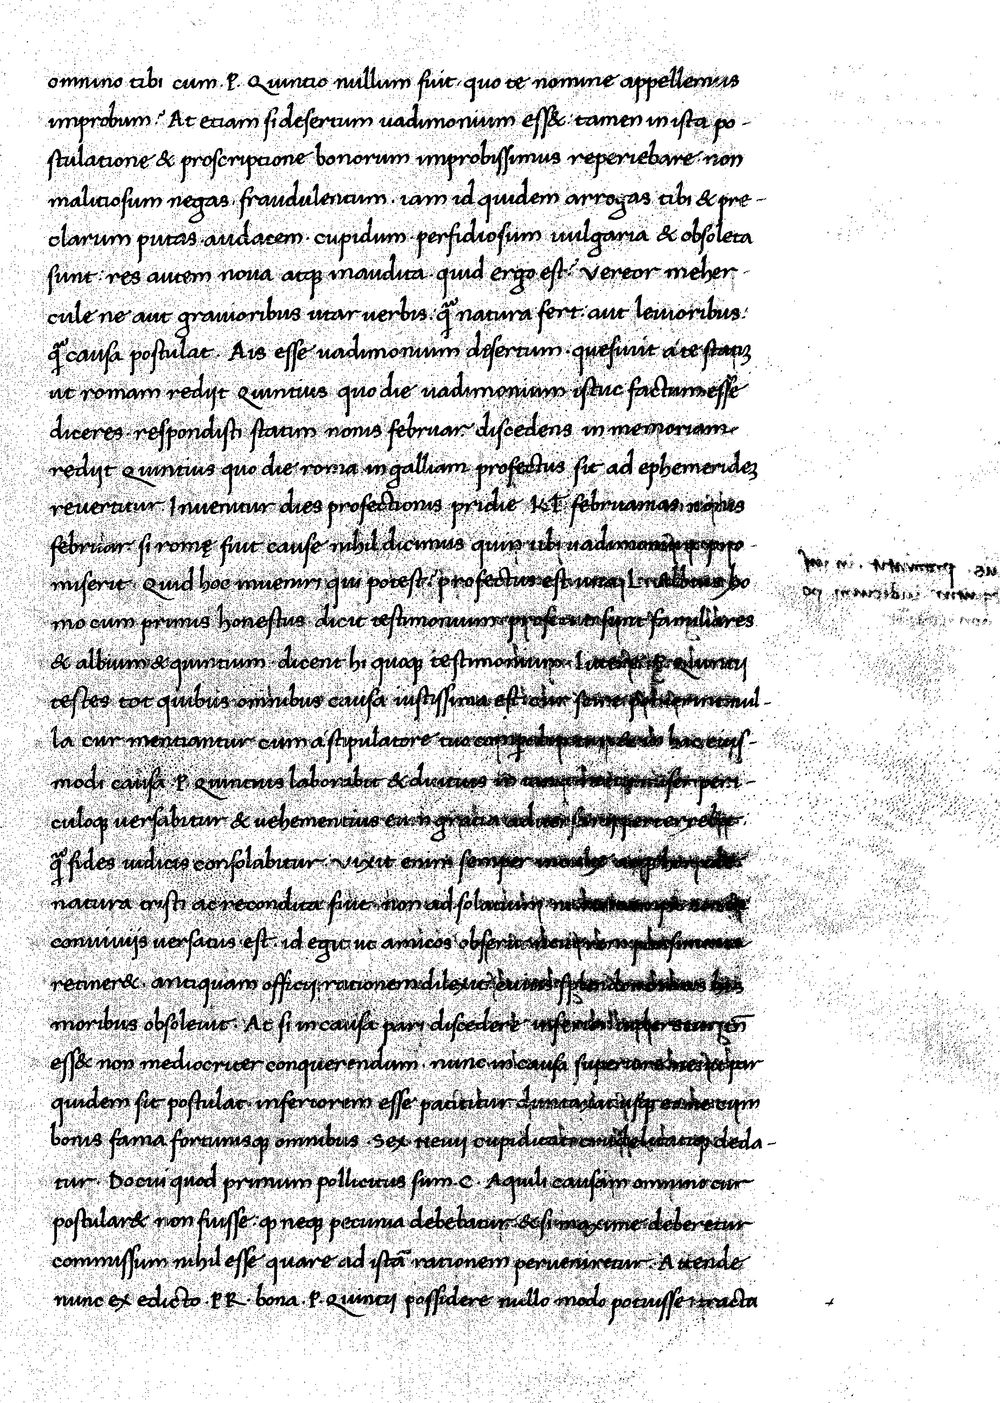 omnino tibi cum .P. Quintio nullum fuit quo te nomine appellemus
improbum? At etiam si desertum uadimonium ess& tamen in ista po-
stulatione & proscriptione bonorum improbissimus reperiebare non
malitiosum negas. fraudulentum. iam id quidem arrogas tibi & pre-
clarum putas audacem. cupidum. perfidiosum uulgaria & obsoleta
sunt. res autem noua atq; inaudita. quid ergo est? Vereor meher-
cule ne aut grauioribus utar uerbis. quā natura fert. aut leuioribus.
quā causa postulat. Ais esse uadimonium desertum. quesiuit a te statiz
ut romam redijt Quintius quo die uadimonium istuc factum esse
diceres. respondisti statim nonis februar. discedens in memoriam
redijt Quintius quo die roma in galliam profectus sit ad ephemeridez
reuertitur. Inuenitur dies profectionis pridie Kl februarias nonis
februar. si romę fuit cause nihil dicimus quin tibi uadimonium promi-
miserit. Quid hoc inueniri qui potest? profectus est una L. Albius ho
mo cum primis honestus dicit testimonium profecti sunt familiares
& albium & quintium. dicent hi quoq; testimonium. Littere P. Quintij
testes tot quibus omnibus causa iustissima est cur scire potuerint nul-
la cur mentiantur cum astipulatore tuo hac eius-
modi causa .P. Quintius laborabit & diutius in miser peri-
culoq; uersabitur & uehementius eum gratia aduersarij perterrebit.
quā fides iudicis consolabitur. Vixit enim semper
natura tristi ac recondita fuit. non ad solarium
conuiuijs uersatus est. id egit ut amicos obseruantia
retiner&. antiquam officij rationem dilexit cuius splendor omnis his
moribus obsoleuit. At si in causa pari discedere inferior
ess& non mediocriter conquerendum. nunc in causa superiore
quidem sit postulat. inferiorem esse patitur cum
bonis fama fortunisq; omnibus. Sex Neuij cupiditati crudelitatiq; deda-
tur. Docui quod primum pollicitus sum .C. Aquili causam omnino cur
postular& non fuisse. qp neq; pecunia debebatur. & si maxime deberetur
commissum nihil esse quare ad istā rationem perueniretur. Attende
nunc ex edicto .PR. bona .P. Quintij possidere nullo modo potuisse tracta